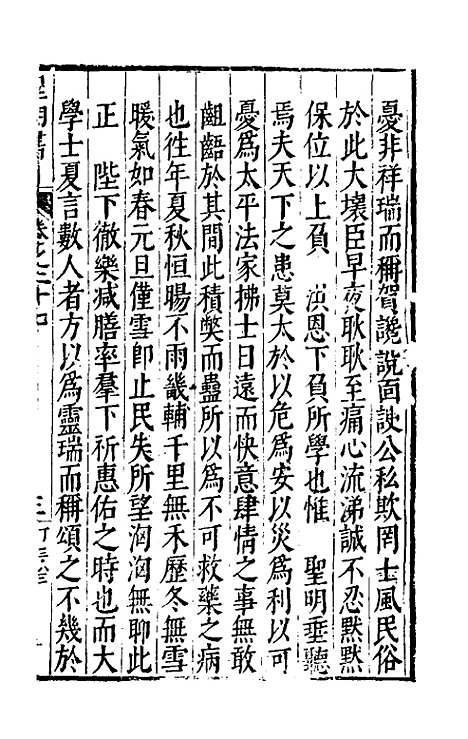 憂非祥瑞而稱賀讒說面諛公私欺罔士風民俗
於此大壞臣早夜耿耿至痛心流涕誠不忍默默
保位以上負 洪恩下負所學也惟 聖明垂聽
焉夫天下之患莫大於以危為安以災為利以可
憂為太平法家拂士日遠而快意肆情之事無敢
齟齬於其間此積弊而蠱所以為不可救藥之病
也徃年夏秋恒暘不雨畿輔千里無禾歷冬無雪
暖氣如春元旦僅雪卽止民失所望洶洶無聊此
正 陛下徹樂减膳率羣下祈惠佑之時也而大
學士夏言數人者方以為靈瑞而稱頌之不幾於
卷之二十四
三